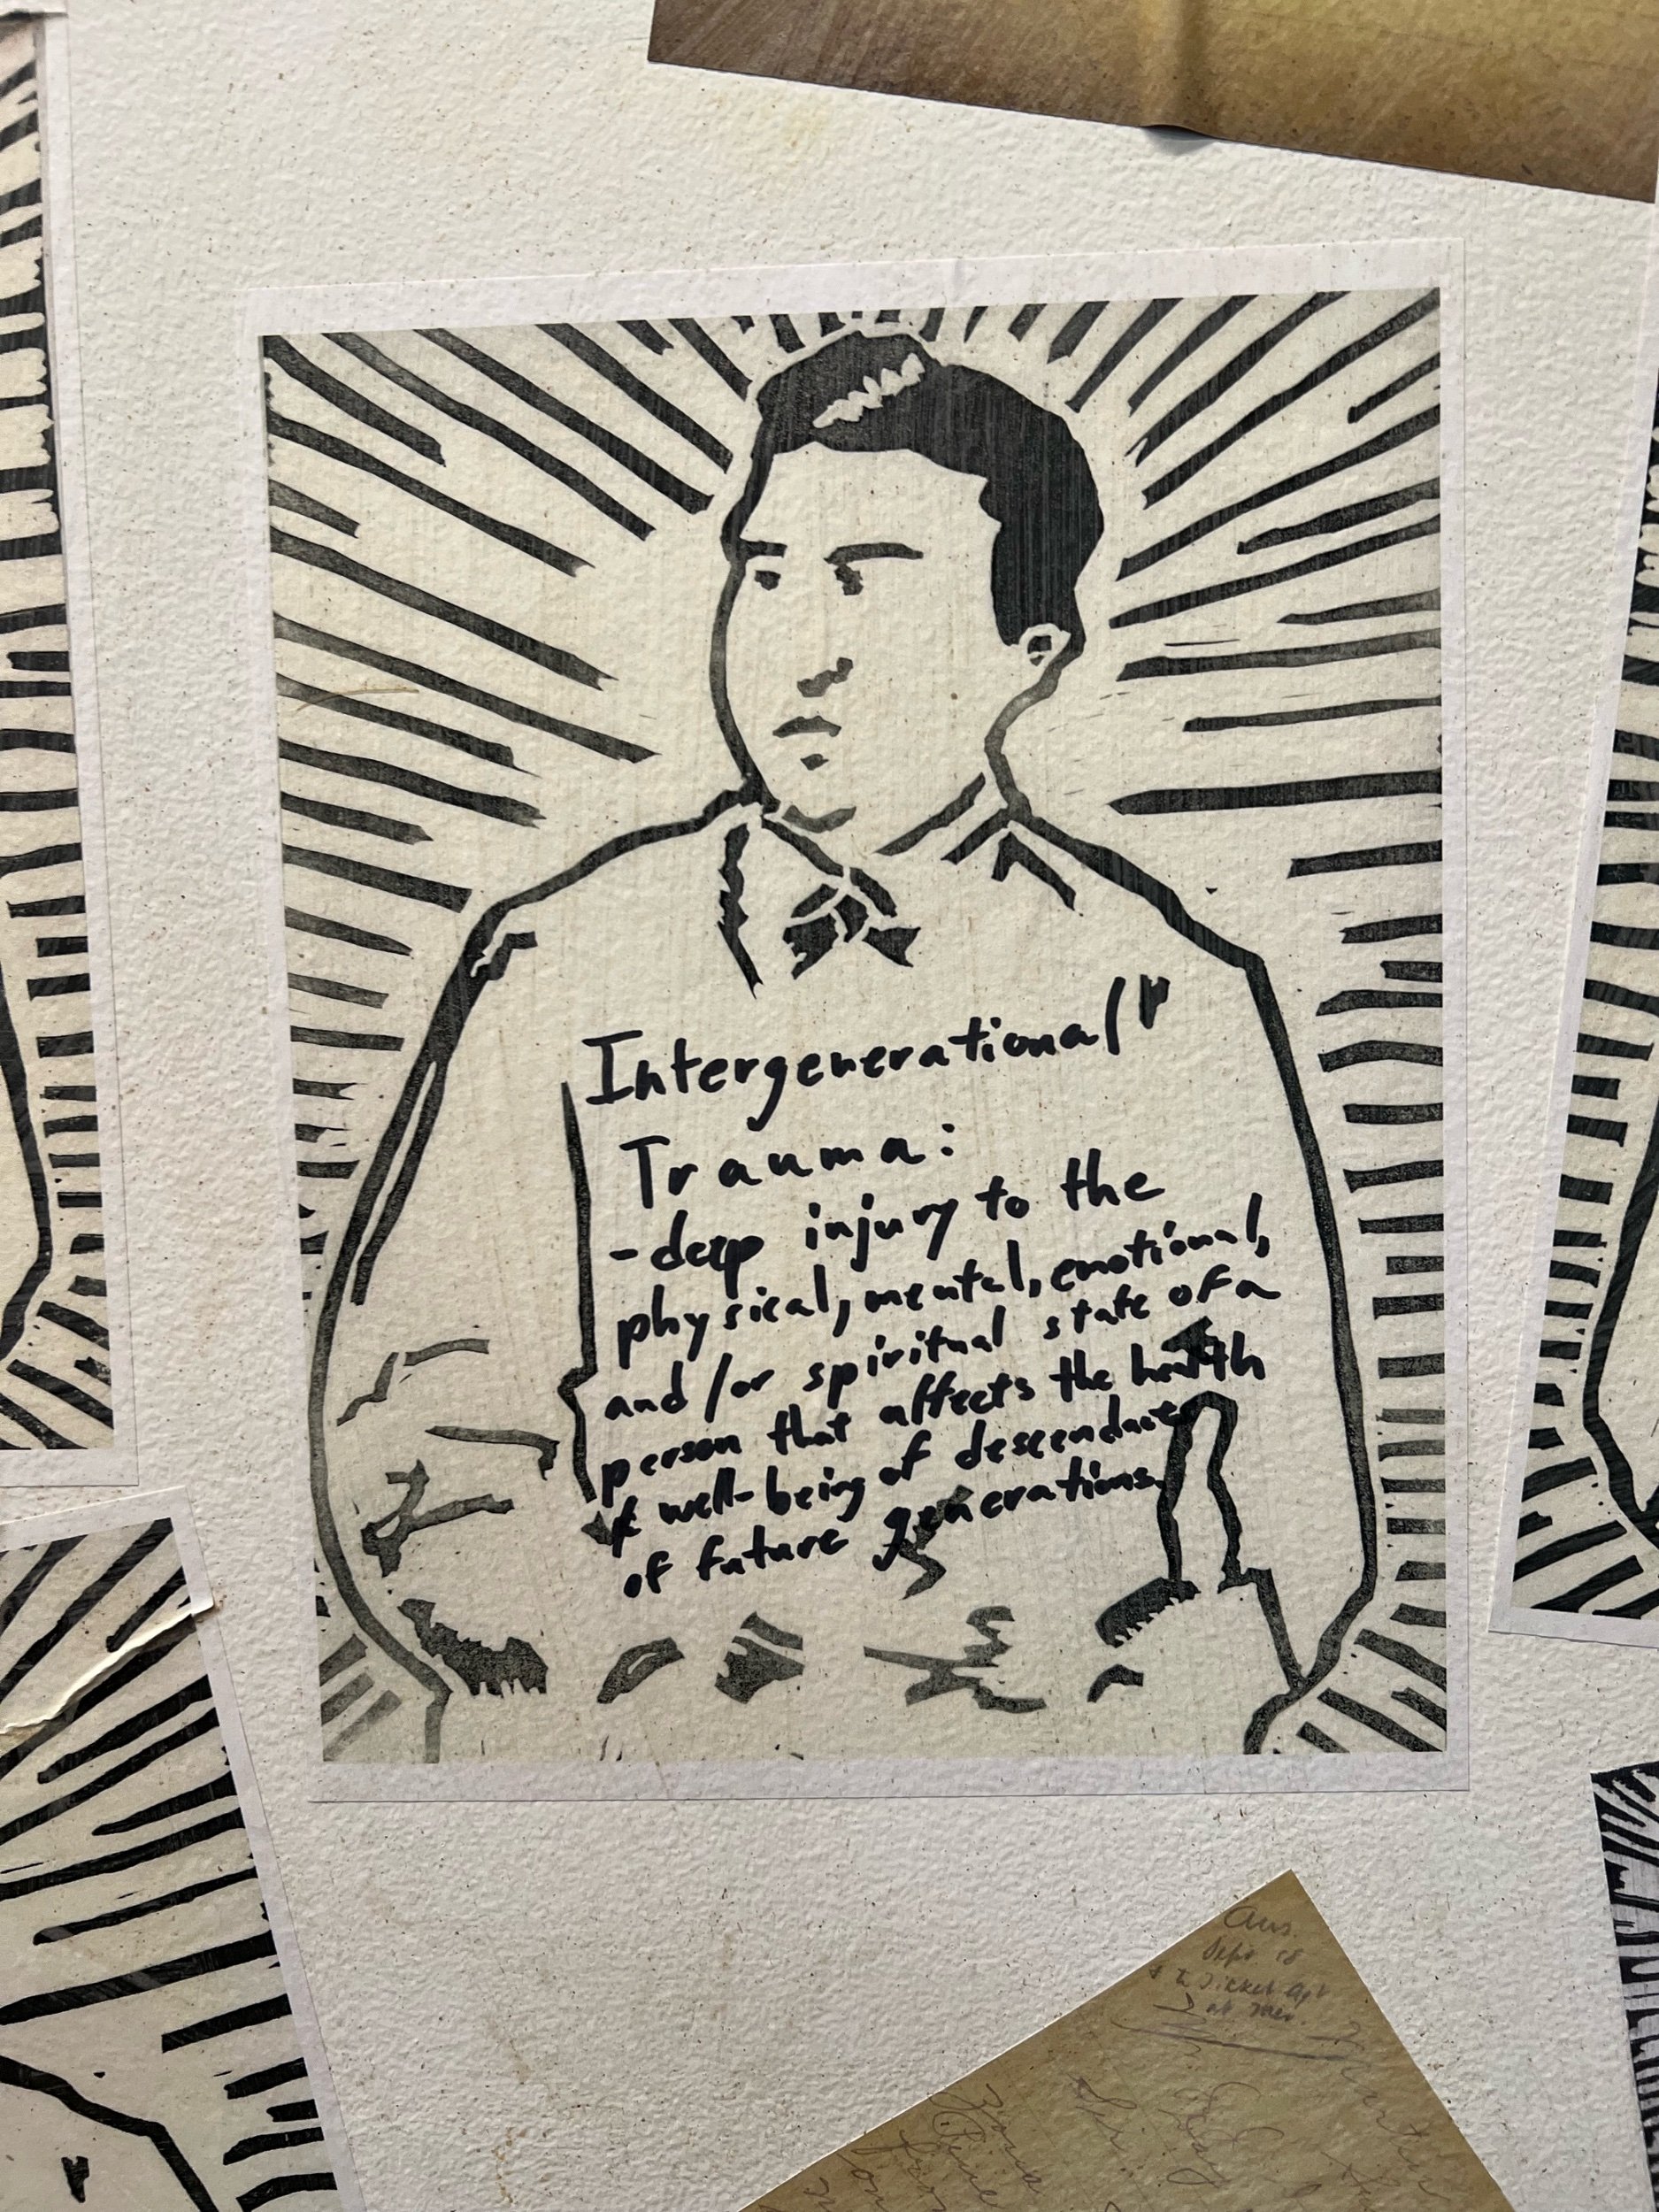 Intergenerational
Trauma:
-deep injury to the
physical, mental, emotional,
and/or spiritual state of a
person that affects the health
& well-being of descendants
of future generations.
Ans.
Sept 18
at